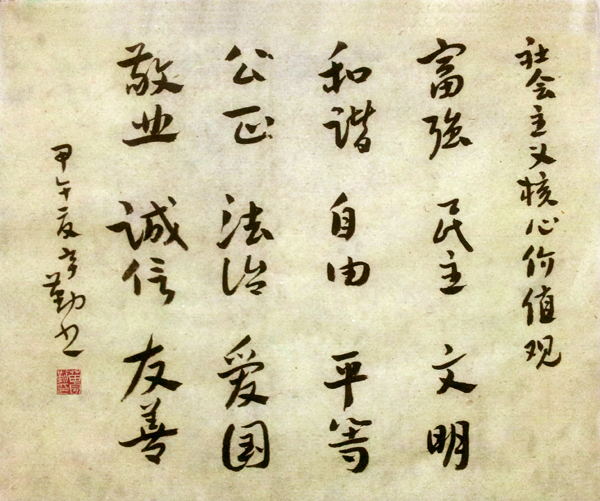 社会主义核心价值观
富强 民主 文明
和谐 自由 平等
公正 法治 爱国
敬业 诚信 友善
甲午夏 勤书